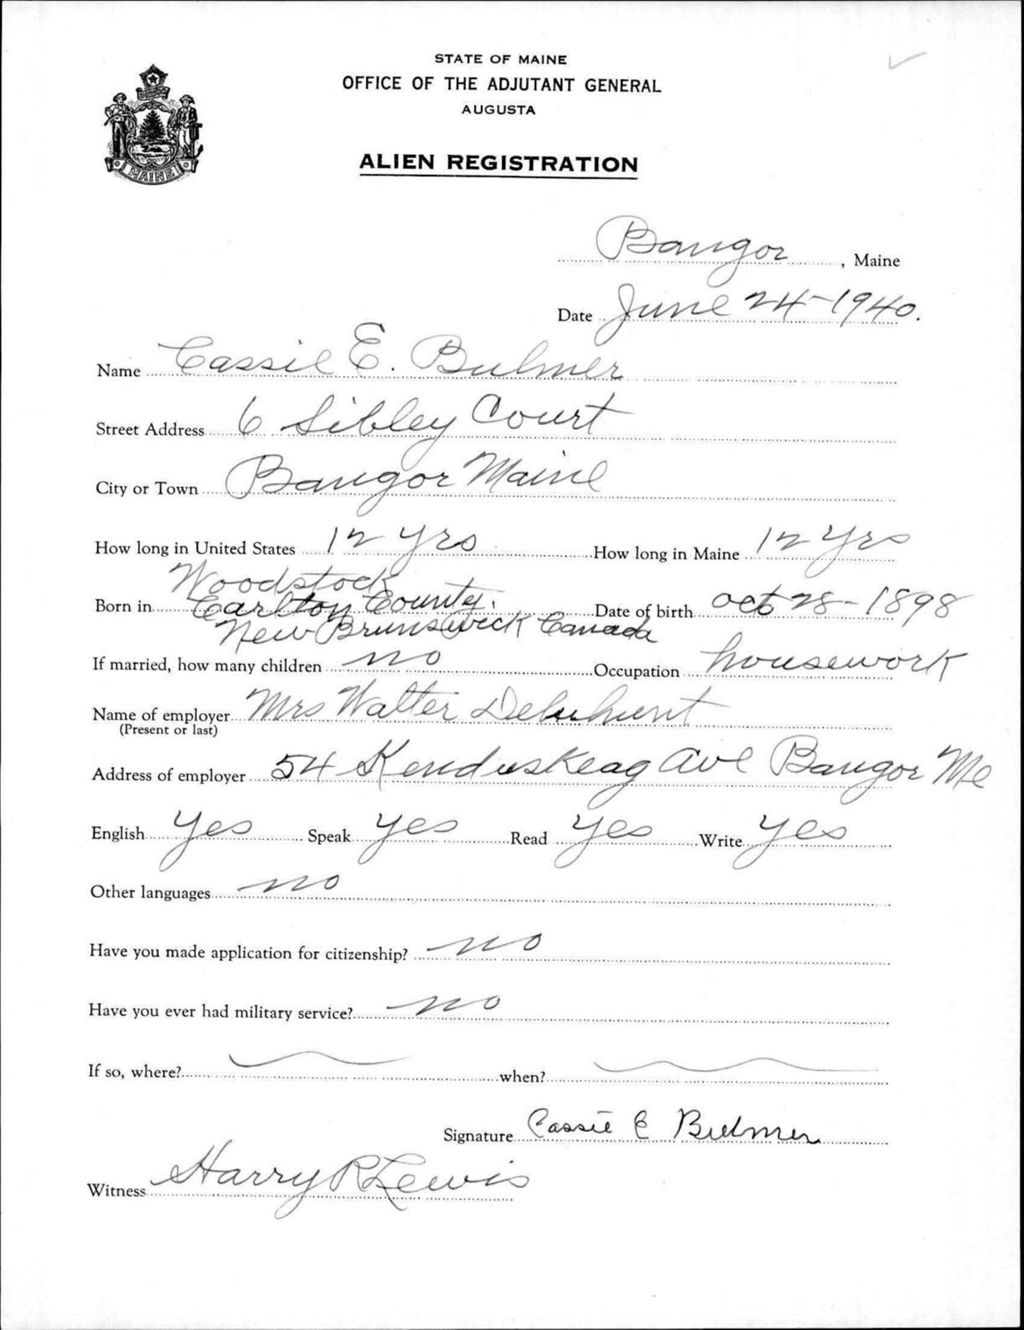 STATE OF MAINE
OFFICE OF THE ADJUTANT GENERAL
AUGUSTA
ALIEN REGISTRATION
MAINE
Bangor, Maine
Date June 24-1940.
Name Cassie E. Bulmer
Street Address 6 Sibley Court
City or Town Bangor Maine
How long in United States 12 yrs How long in Maine 12 yrs
Woodstock
Born in Carlton County. Date of birth Oct 28-1898
New Brunswick Canada
If married, how many children no Occupation housework
Name of employer Mrs Walter
(Present or last)
Address of employer 54 Kenduskeag Ave Bangor Me
English yes Speak yes Read yes Write yes
Other languages no
Have you made application for citizenship? no
Have you ever had military service? no
If so, where? when?
Signature Cassie E Bulmer
Witness Harry R Lewis